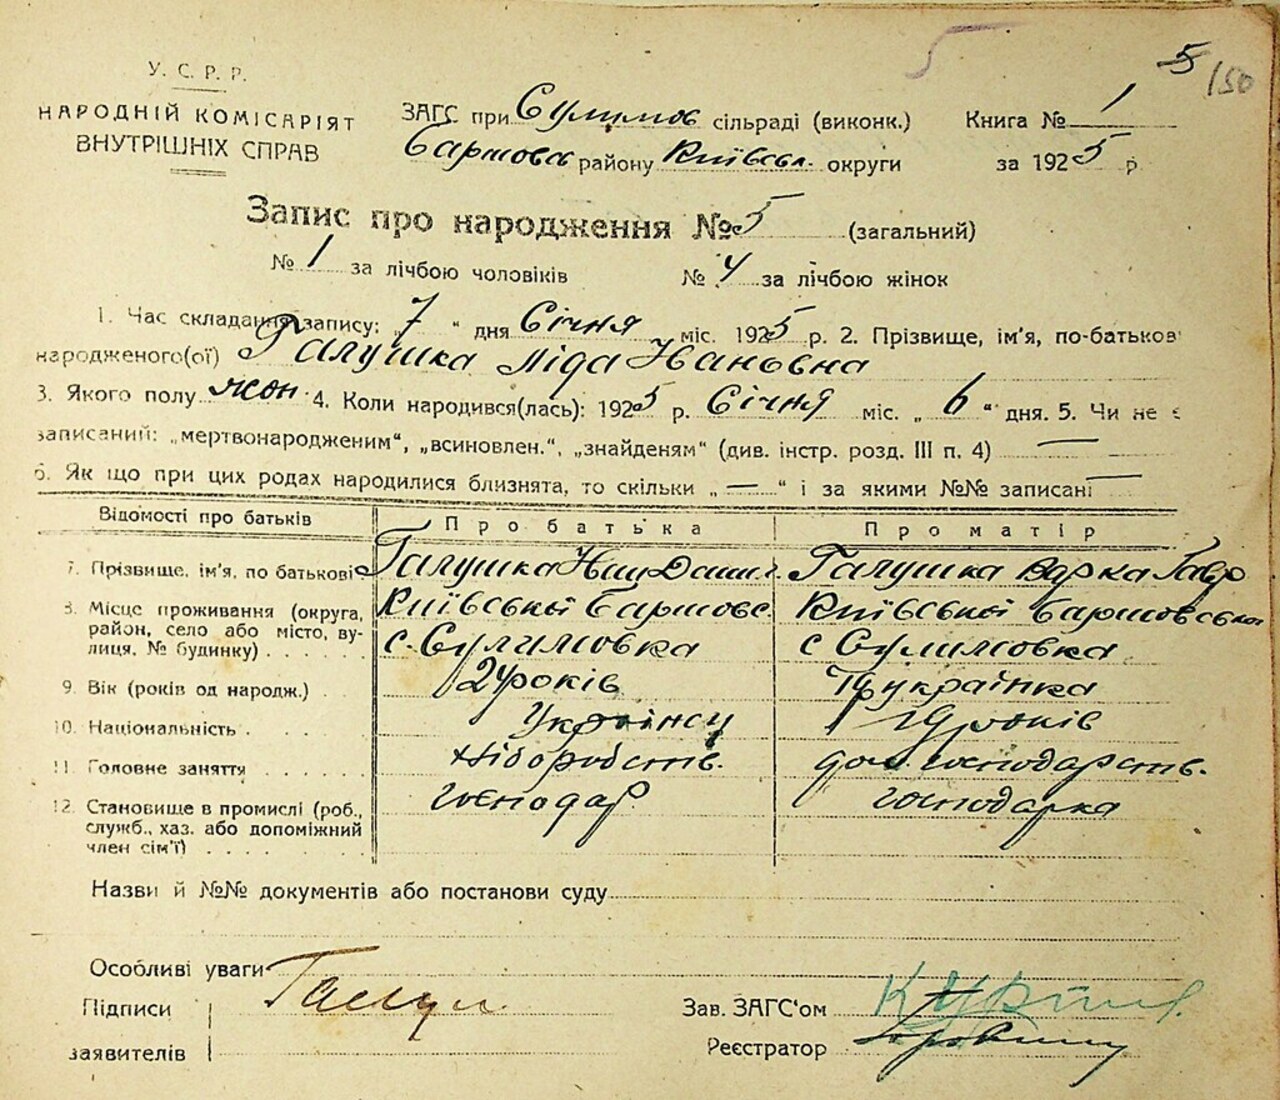 5 150
У. С. Р. Р.
НАРОДНІЙ КОМІСАРІЯТ
ВНУТРІШНІХ СПРАВ
ЗАГС при Сулимов сільраді (виконк.) Книга № 1
району Київськ. округи за 1925 р.
Запис про народження № 5 (загальний)
№ 1 за лічбою чоловіків № 4 за лічбою жінок
1. Час складання запису: „7" дня Січня міс. 1925 р. 2. Прізвище, ім'я, по-батькові
народженого(ої) Галушка Ліда Івановна
3. Якого полу жон. 4. Коли народився(лась): 1925 р. Січня міс. „6" дня. 5. Чи не є
записаний: „мертвонародженим", „всиновлен.", „знайденям" (див. інстр. розд. III п. 4) —
6. Як що при цих родах народилися близнята, то скільки „—" і за якими №№ записані —
Відомості про батьків Про батька Про матір
7. Прізвище, ім'я, по батькові Галушка Галушка Варка Гавр
8. Місце проживання (округа, Київської Київської
район, село або місто, ву- с. Сулимовка с Сулимовка
лиця, № будинку)
9. Вік (років од народж.) 24 років українка
10. Національність Українец 19 років
11. Головне заняття хліборобств. дом. господарств.
12. Становище в промислі (роб., господар господарка
служб., хаз. або допоміжний
член сім'ї)
Назви й №№ документів або постанови суду
Особливі уваги
Підписи Зав. ЗАГС'ом
заявителів Реєстратор